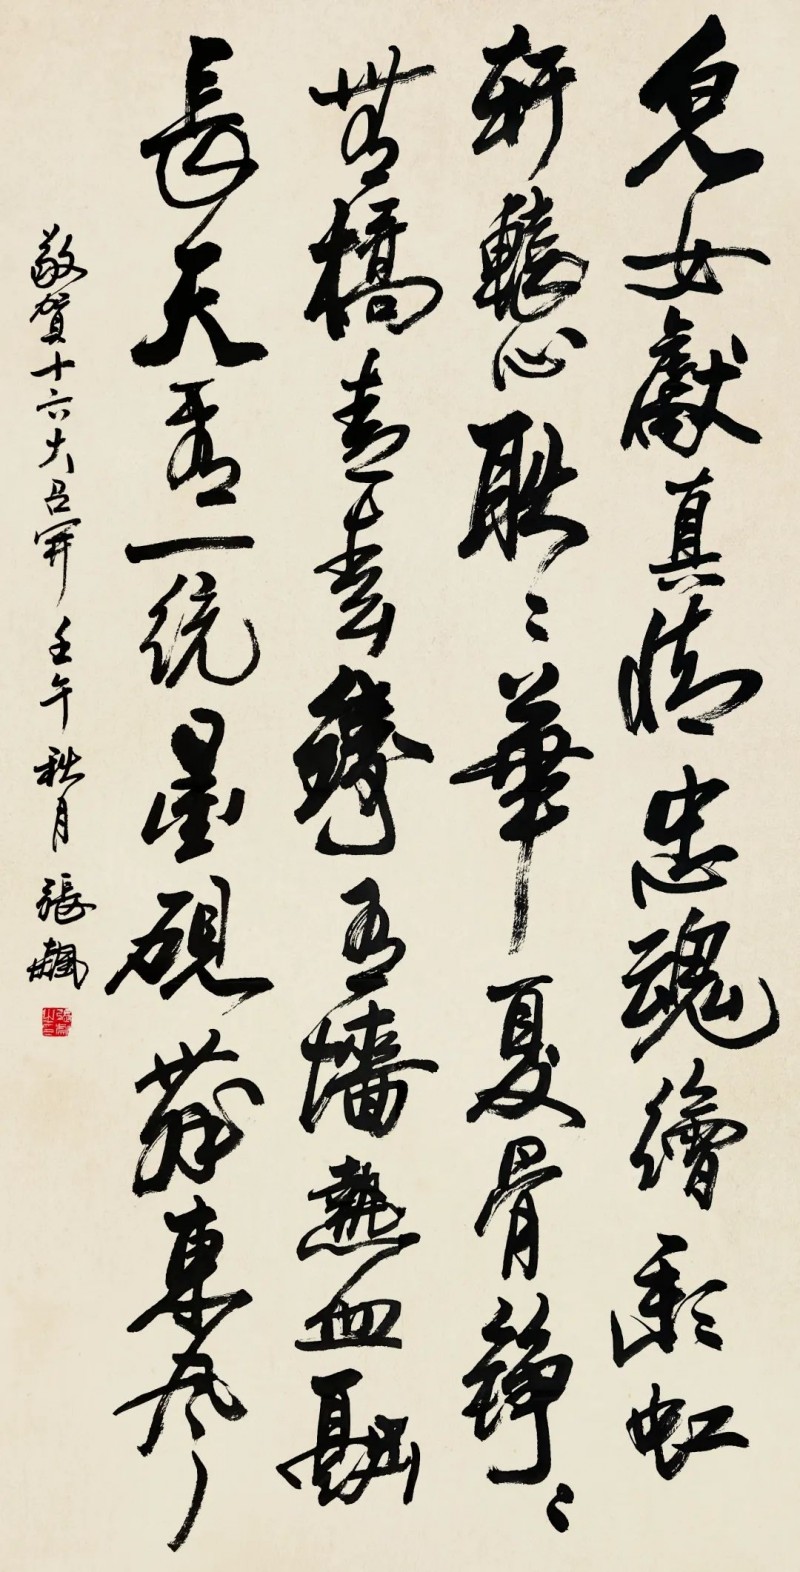 兒女獻真情忠魂繪彩虹
軒轅心耿〻華夏骨錚〻
無橋青春鑄有墻熱血融
長天看一統墨硯舞東風
敬賀十六大召開 壬午秋月 張飆